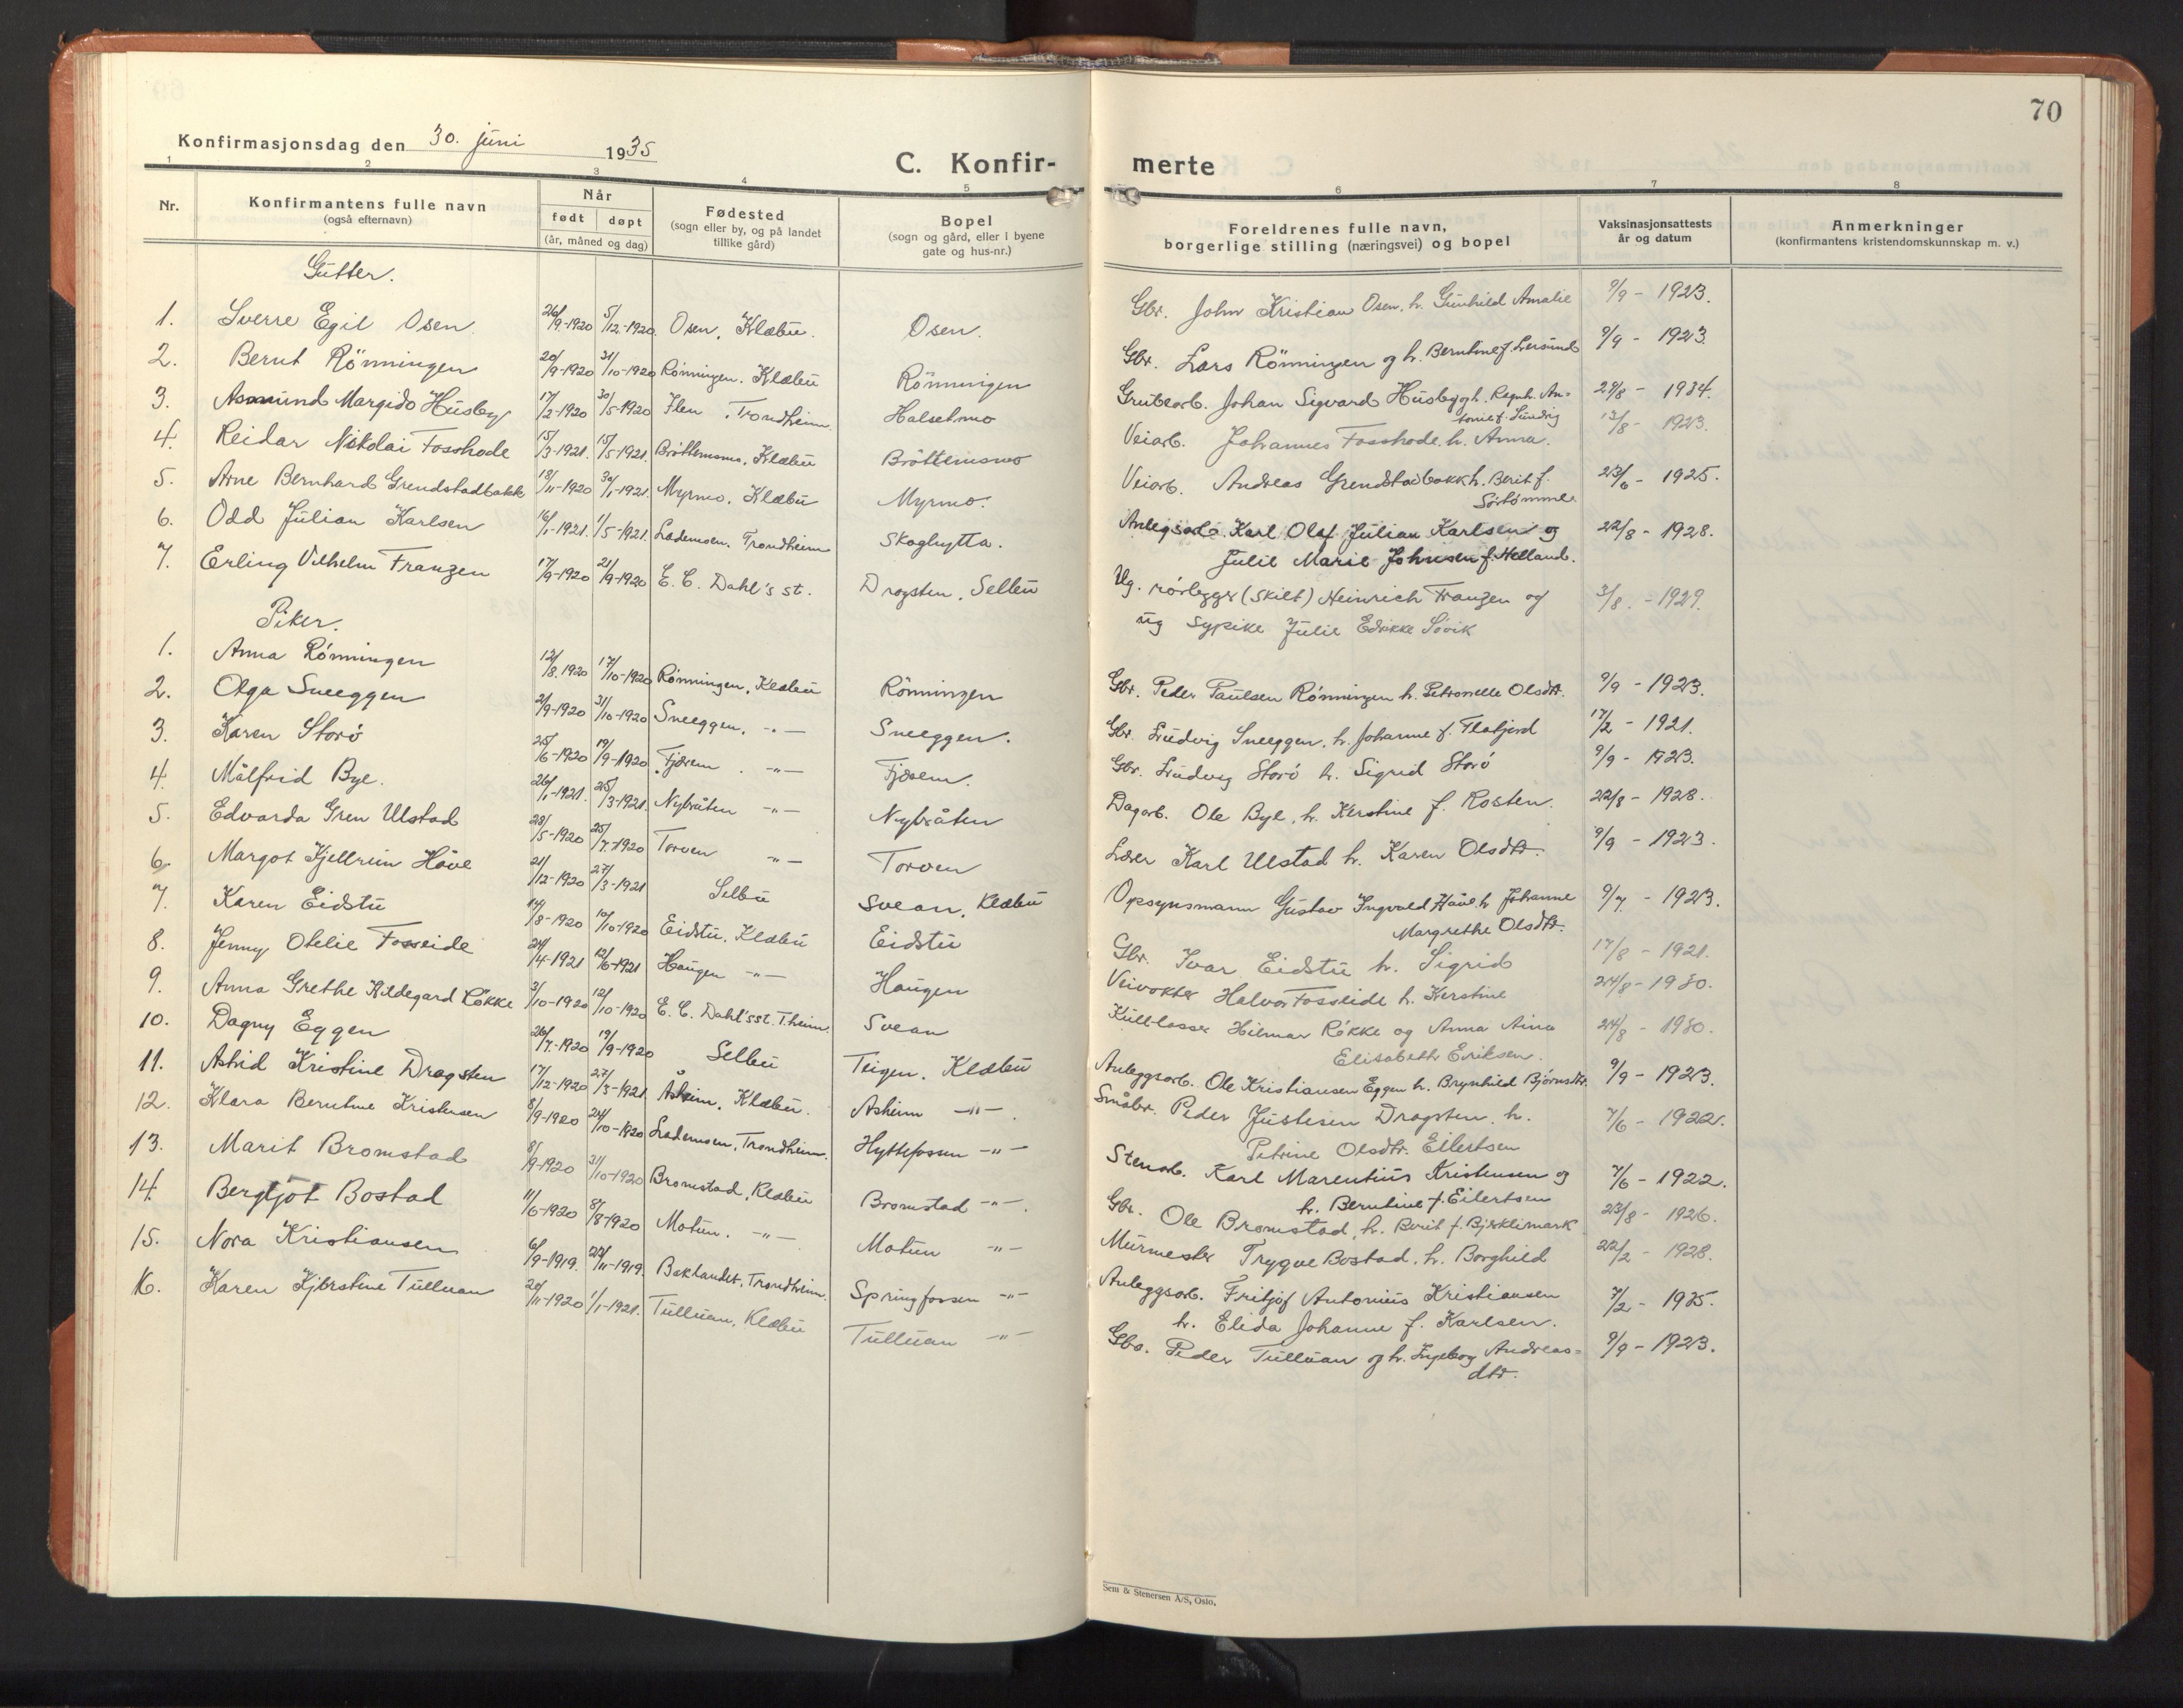 70
Konfirmasjonsdag den 30. juni 1935
C. Konfir-
merte
1 2 3 4 5 6 7 8
Nr.
Konfirmantens fulle navn
(også efternavn)
Når
født døpt
(år, måned og dag)
Fødested
(sogn eller by, og på landet
tillike gård)
Bopel
(sogn og gård, eller i byene
gate og hus-nr.)
Foreldrenes fulle navn,
borgerlige stilling (næringsvei) og bopel
Vaksinasjonsattests
år og datum
Anmerkninger
(konfirmantens kristendomskunnskap m. v.)
Gutter.
1. Sverre Egil Osen. 26/9-1920 5/12-1920. Osen, Klæbu. Osen. Gbr. John Kristian Osen, h. Gunhild Amalie 9/9 - 1923.
2. Bernt Rönningen 20/9-1920 31/10-1920 Rönningen. Klæbu Rönningen Gbr. Lars Rönningen og h. Berntine f. 9/9 - 1923.
3. Asmund Margido Husby 17/2-1920 30/5-1920 Ilen, Trondheim. Halsetmo Grubearb. Johan Sigvard Husby og h. Ragnh. An=
tonie f. 29/8 - 1934.
4. Reidar Nikolai Fosshode 15/3-1921. 15/5-1921. Bröttemsmo, Klæbu Bröttemsmo Veiarb. Johannes Fosshode h. Anna. 13/8 - 1923.
5. Arne Bernhard Grendstadbakk 18/11-1920 30/1-1921. Myrmo, Klæbu Myrmo. Veiarb. Andreas Grendstadbakk h. Berit f.
Sörtömme. 23/6 - 1925.
6. Odd Julian Karlsen 16/1-1921. 1/5-1921. Lademoen, Trondheim Skoghytta. Anlegsarb. Karl Olaf Julian Karlsen og
Julie Marie Johnsen f. Helland. 22/8 - 1928.
7. Erling Vilhelm Franzen 17/9-1920 21/9-1920 E. C. Dahl's st. Dragsten, Selbu Ug. rörlegger (skilt) Heinrich Franzen og
ug sypike Julie Edrikke Sövik 3/8. - 1929.
Piker.
1. Anna Rönningen 12/8. 1920 17/10-1920 Rönningen, Klæbu Rönningen Gbr. Peder Paulsen Rönningen h. Petronelle Olsdtr. 9/9 - 1923.
2. Olga Sneeggen 2/9-1920 31/10-1920 Sneeggen, -"- Sneeggen. Gbr. Ludvig Sneeggen, h. Johanne f. Flatjord 17/2 - 1921.
3. Karen Storö 25/6-1920 19/9-1920 Fjærem. -"- Fjærem. Gbr. Ludvig Storö h. Sigrid Storö 9/9 - 1923.
4. Målfrid Bye. 26/1-1921. 25/3-1921. Nybråten -"- Nybråten Dagarb. Ole Bye, h. Kerstine f. Rosten. 22/8 - 1928.
5. Edvarda Gren Ulstad 28/5-1920 25/7-1920 Torven -"- Torven Lærer Karl Ulstad h. Karen Olsdtr. 9/9 - 1923.
6. Margot Kjellrun Håve 21/12-1920 27/3-1921 Selbu Svean, Klæbu Opsynsmann Gustav Ingvald Håve h. Johanne
Margrethe Olsdtr. 9/7 - 1923.
7. Karen Eidstu 14/8-1920 10/10-1920 Eidstu, Klæbu Eidstu Gbr. Ivar Eidstu h. Sigrid 17/8 - 1921.
8. Jenny Otelie Fosseide 24/4-1921 12/6-1921 Haugen -"- Haugen Veivokter Halvor Fosseide h. Kerstine 24/8 - 1930.
9. Anna Grethe Hildegard Rökke 3/10-1920 12/10-1920 E. C. Dahl's st. T.heim. Svean Kullosser Hilmar Rökke og Anna Aina
Elisabeth Eriksen. 24/8 - 1930.
10. Dagny Eggen 26/7-1920 19/9-1920 Selbu Teigen, Klæbu Anleggsarb. Ole Kristiansen Eggen h. Brynhild Björnsdtr. 9/9 - 1923.
11. Astrid Kristine Dragsten 17/12-1920 27/3-1921. Åsheim, Klæbu. Asheim -"-. Småbr. Peder Justesen Dragsten, h.
Petrine Olsdtr. Eilertsen 7/6 - 1922.
12. Klara Berntine Kristensen 8/9-1920 24/10-1920 Lademoen, Trondheim. Hyttefossen -"- Stenarb. Karl Marentius Kristensen og
h. Berntine f. Eilertsen 7/6 - 1922.
13. Marit Bromstad 8/9-1920 31/10-1920 Bromstad, Klæbu Bromstad -"-. Gbr. Ole Bromstad, h. Berit f. Bjerklimark 23/8 - 1926.
14. Bergljot Bostad 11/6-1920 8/8-1920 Motun. -"- Motun -"- Murmester Trygve Bostad, h. Borghild 22/2 - 1928.
15. Nora Kristiansen 6/9-1919. 23/11-1919. Baklandet, Trondheim. Springfossen -"- Anleggsarb. Fritjof Antonius Kristiansen
h. Elida Johanne f. Karlsen. 7/2 - 1935.
16. Karen Kjerstine Tulluan 20/11-1920 1/1-1921. Tulluan, Klæbu Tulluan -"- Gbr. Peder Tulluan og h. Ingeborg Andreas=
dtr. 9/9 - 1923.
Sem & Stenersen A/S, Oslo.